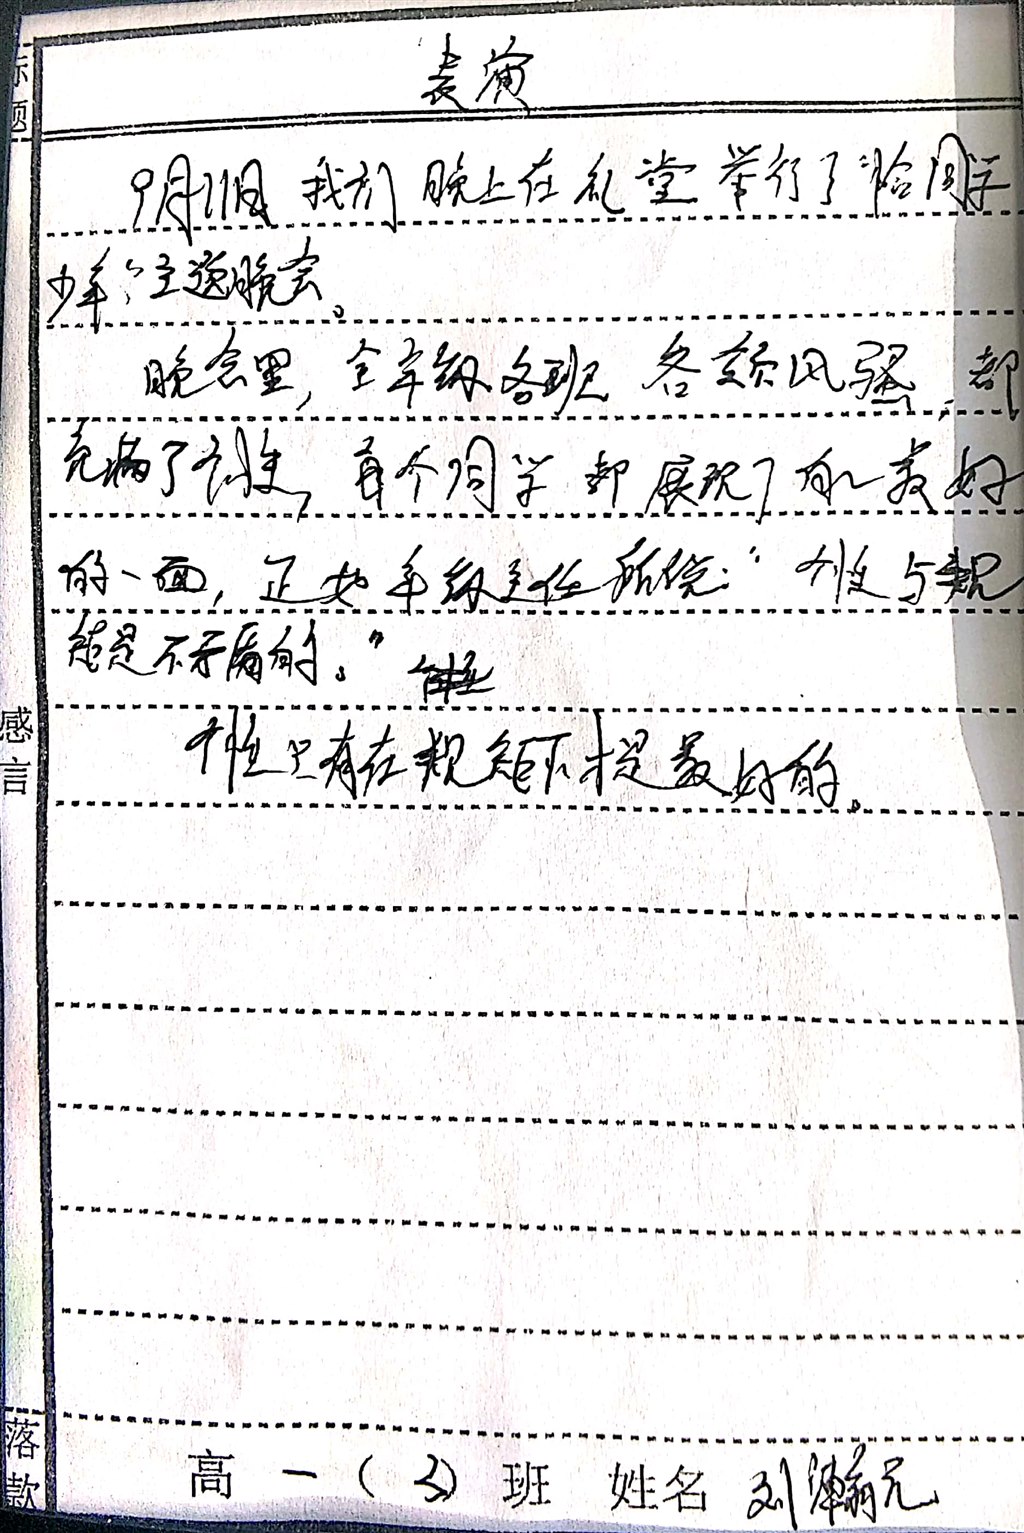 标题
表演
9月11日 我们 晚上在礼堂举行了“恰同学
少年”主题晚会。
晚会里，全年级各班 各领风骚，都
充满了个性，每个同学 都 展现了 最美好
的一面，正如年级主任所说：“个性与规
矩是不矛盾的。”
个性只有在规矩下才是最好的。
感言
落款
高一（3）班 姓名 刘瀚元